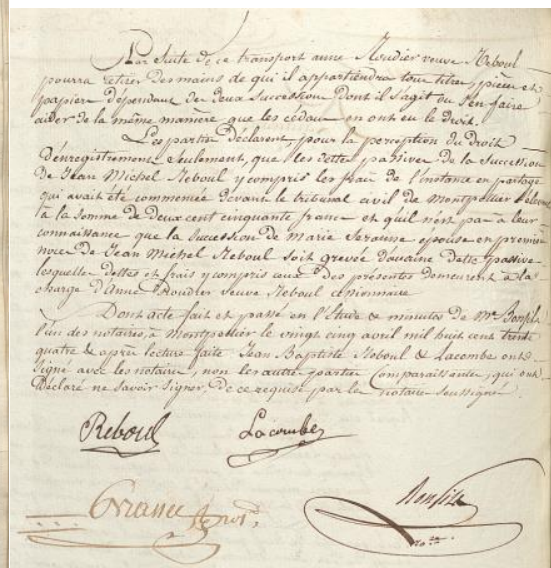 Par suite de ce transport anne Roudier veuve Reboul
pourra retirer des mains de qui il appartiendra tous titres, pièces et
papiers dépendant des deux successions dont il s'agit ou s'en faire
aider de la même manière que les cédans en ont eu le droit.
Les parties Déclarent, pour la perception du Droit
d'enregistrement seulement, que les dettes passives de la succession
de Jean Michel Reboul y compris les frais de l'instance en partage
qui avait été commencée devant le tribunal civil de Montpellier s'élèvent
à la somme de deux cent cinquante francs et qu'il n'est pas à leur
connaissance que la succession de Marie épouse en première
noces de Jean Michel Reboul soit grevée d'aucune dette passive
lesquelles dettes et frais y compris ceux des présentes demeurent à la
charge d'Anne Roudier veuve Reboul cessionnaire
Dont acte fait et passé en l'Etude & minutes de Me Bonfils
l'un des notaires, à Montpellier le vingt cinq avril mil huit cent trente
quatre & après lecture faite Jean Baptiste Reboul & Lacombe ont
signé avec les notaires, non les autres parties Comparaissantes, qui ont
Déclaré ne savoir signer, de ce requises par le notaire soussigné.
Reboul Lacombe
Bonfils